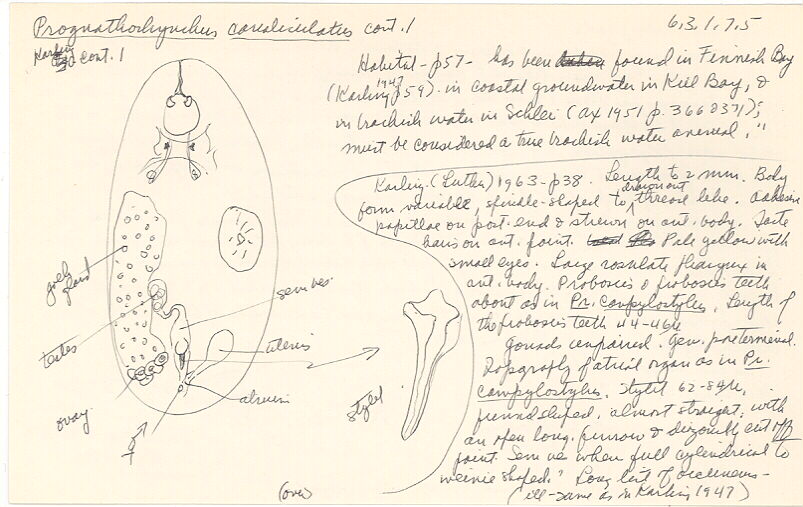 Prognathorhynchus canaliculatus cont. 1
6,3,1,7,5
Karling cont. 1
Habitat - p57 - has been found in Finnish Bay
(Karling 1947 p59). in coastal groundwater in Kiel Bay, &
in brackish water in Schlei (Ax 1951 p. 366 & 371);
must be considered a true brackish water animal."
Karling (Luther) 1963 - p38. Length to 2 mm. Body
form variable, spindle-shaped to drawn out thread like. Adhesive
papillae on post. end & strewn on ant. body. Taste
hairs on ant. point. Pale yellow with
small eyes. Large rosulate pharynx in
ant. body. Proboscis & proboscis teeth
about as in Pr. campylostylus. Length of
the proboscis teeth 44-46µ
gonads unpaired. gen. p. preterminal.
Topography of atrial organ as in Pr.
campylostylus. Stylet 62-84µ,
funnel shaped, almost straight, with
an open long. furrow & diagonally cut off
point. Sem ves when full cylindrical to
weinie shaped." Long list of occurrences -
(ill - same as in Karling 1947)
yolk gland
testes
ovary
sem. ves.
uterus
atrium
stylet
(over)